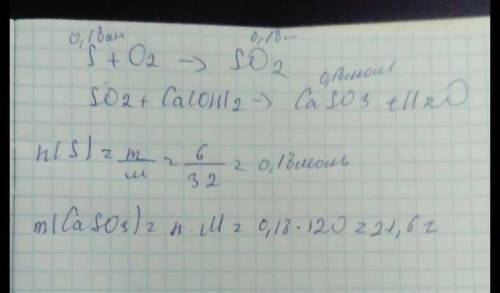 0,18 мол 0,18 м
S + O2 → SO2
0,18 моль
SO2 + Ca(OH)2 → CaSO3 + H2O
n(S) = m/M = 6/32 = 0,18 моль
m(CaSO3) = n · M = 0,18 · 120 = 21,6 г